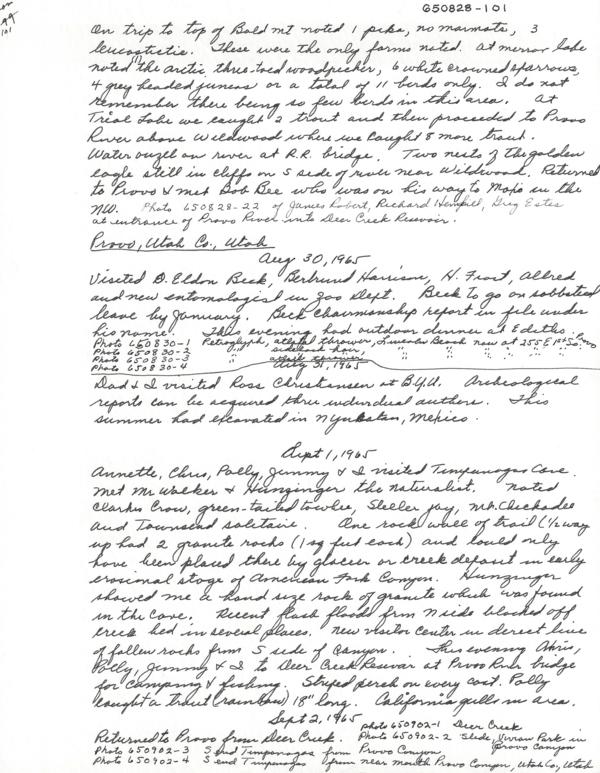 650828-101
On trip to top of Bald Mt noted 1 pika, no marmots, 3
leucosticte. These were the only forms noted. At mirror lake
noted the arctic three-toed woodpecker, 6 white crowned sparrows,
4 grey headed juncos or a total of 11 birds only. I do not
remember there being so few birds in this area. At
Trial Lake we caught 2 trout and then proceeded to Provo
River above Wildwood where we caught 8 more trout.
Water ouzel on river at R.R. bridge. Two nests of the golden
eagle still in cliffs on S side of river near Wildwood. Returned
to Provo & met Bob Bee who was on his way to Mojo in the
NW. Photo 650828-22 of James Robert, Richard Hempiel, Greg Estes
at entrance of Provo River into Deer Creek Resevoir.
Provo, Utah Co., Utah
Aug 30, 1965
Visited D. Eldon Beck, Bertrand Harrison, H. Frost, Allred
and new entomologist in Zoo Dept. Beck to go on sabbatical
leave by January. Beck chairmanship report in file under
his name. This evening had outdoor dinner at Ediths.
Photo 650830-1 Petroglyph, atlatal thrower, Lincoln Beach now at 255 E 1st So. Provo
Photo 650830-2
Photo 650830-3
Photo 650830-4
Aug 31, 1965
Dad & I visited Ross Christensen at B.Y.U. Archeological
reports can be acquired thru individual authors. This
summer had excavated in N Yukatan, Mexico.
Sept 1, 1965
Annette, Chris, Polly, Jimmy & I visited Timpanogas Cave.
Met Mr Walker & Hunzinger the naturalist. Noted
Clarks Crow, green-tailed towhee, Steller jay, mt. Chickadee
and Townsend solitaire. One rock wall of trail (½ way
up had 2 granite rocks (1 sq feet each) and could only
have been placed there by glacier or creek deposit in early
erosional stage of American Fork Canyon. Hunzinger
showed me a hand size rock of granite which was found
in the Cave. Recent flash floods from N side blocked off
creek bed in several places. New visitor center in direct line
of fallen rocks from S side of Canyon. This evening Chris,
Polly, Jimmy & I to Deer Creek Resevoir at Provo River bridge
for camping & fishing. Striped perch on every cast. Polly
caught a trout (rainbow) 18" long. California gulls in area.
Sept 2, 1965 Photo 650902-1 Deer Creek
Returned to Provo from Deer Creek. Photo 650902-2 Slide, Vivian Park in
Provo Canyon
Photo 650902-3 S end Timpanogas from Provo Canyon
Photo 650902-4 S end Timpanogas from near mouth Provo Canyon, Utah Co, Utah